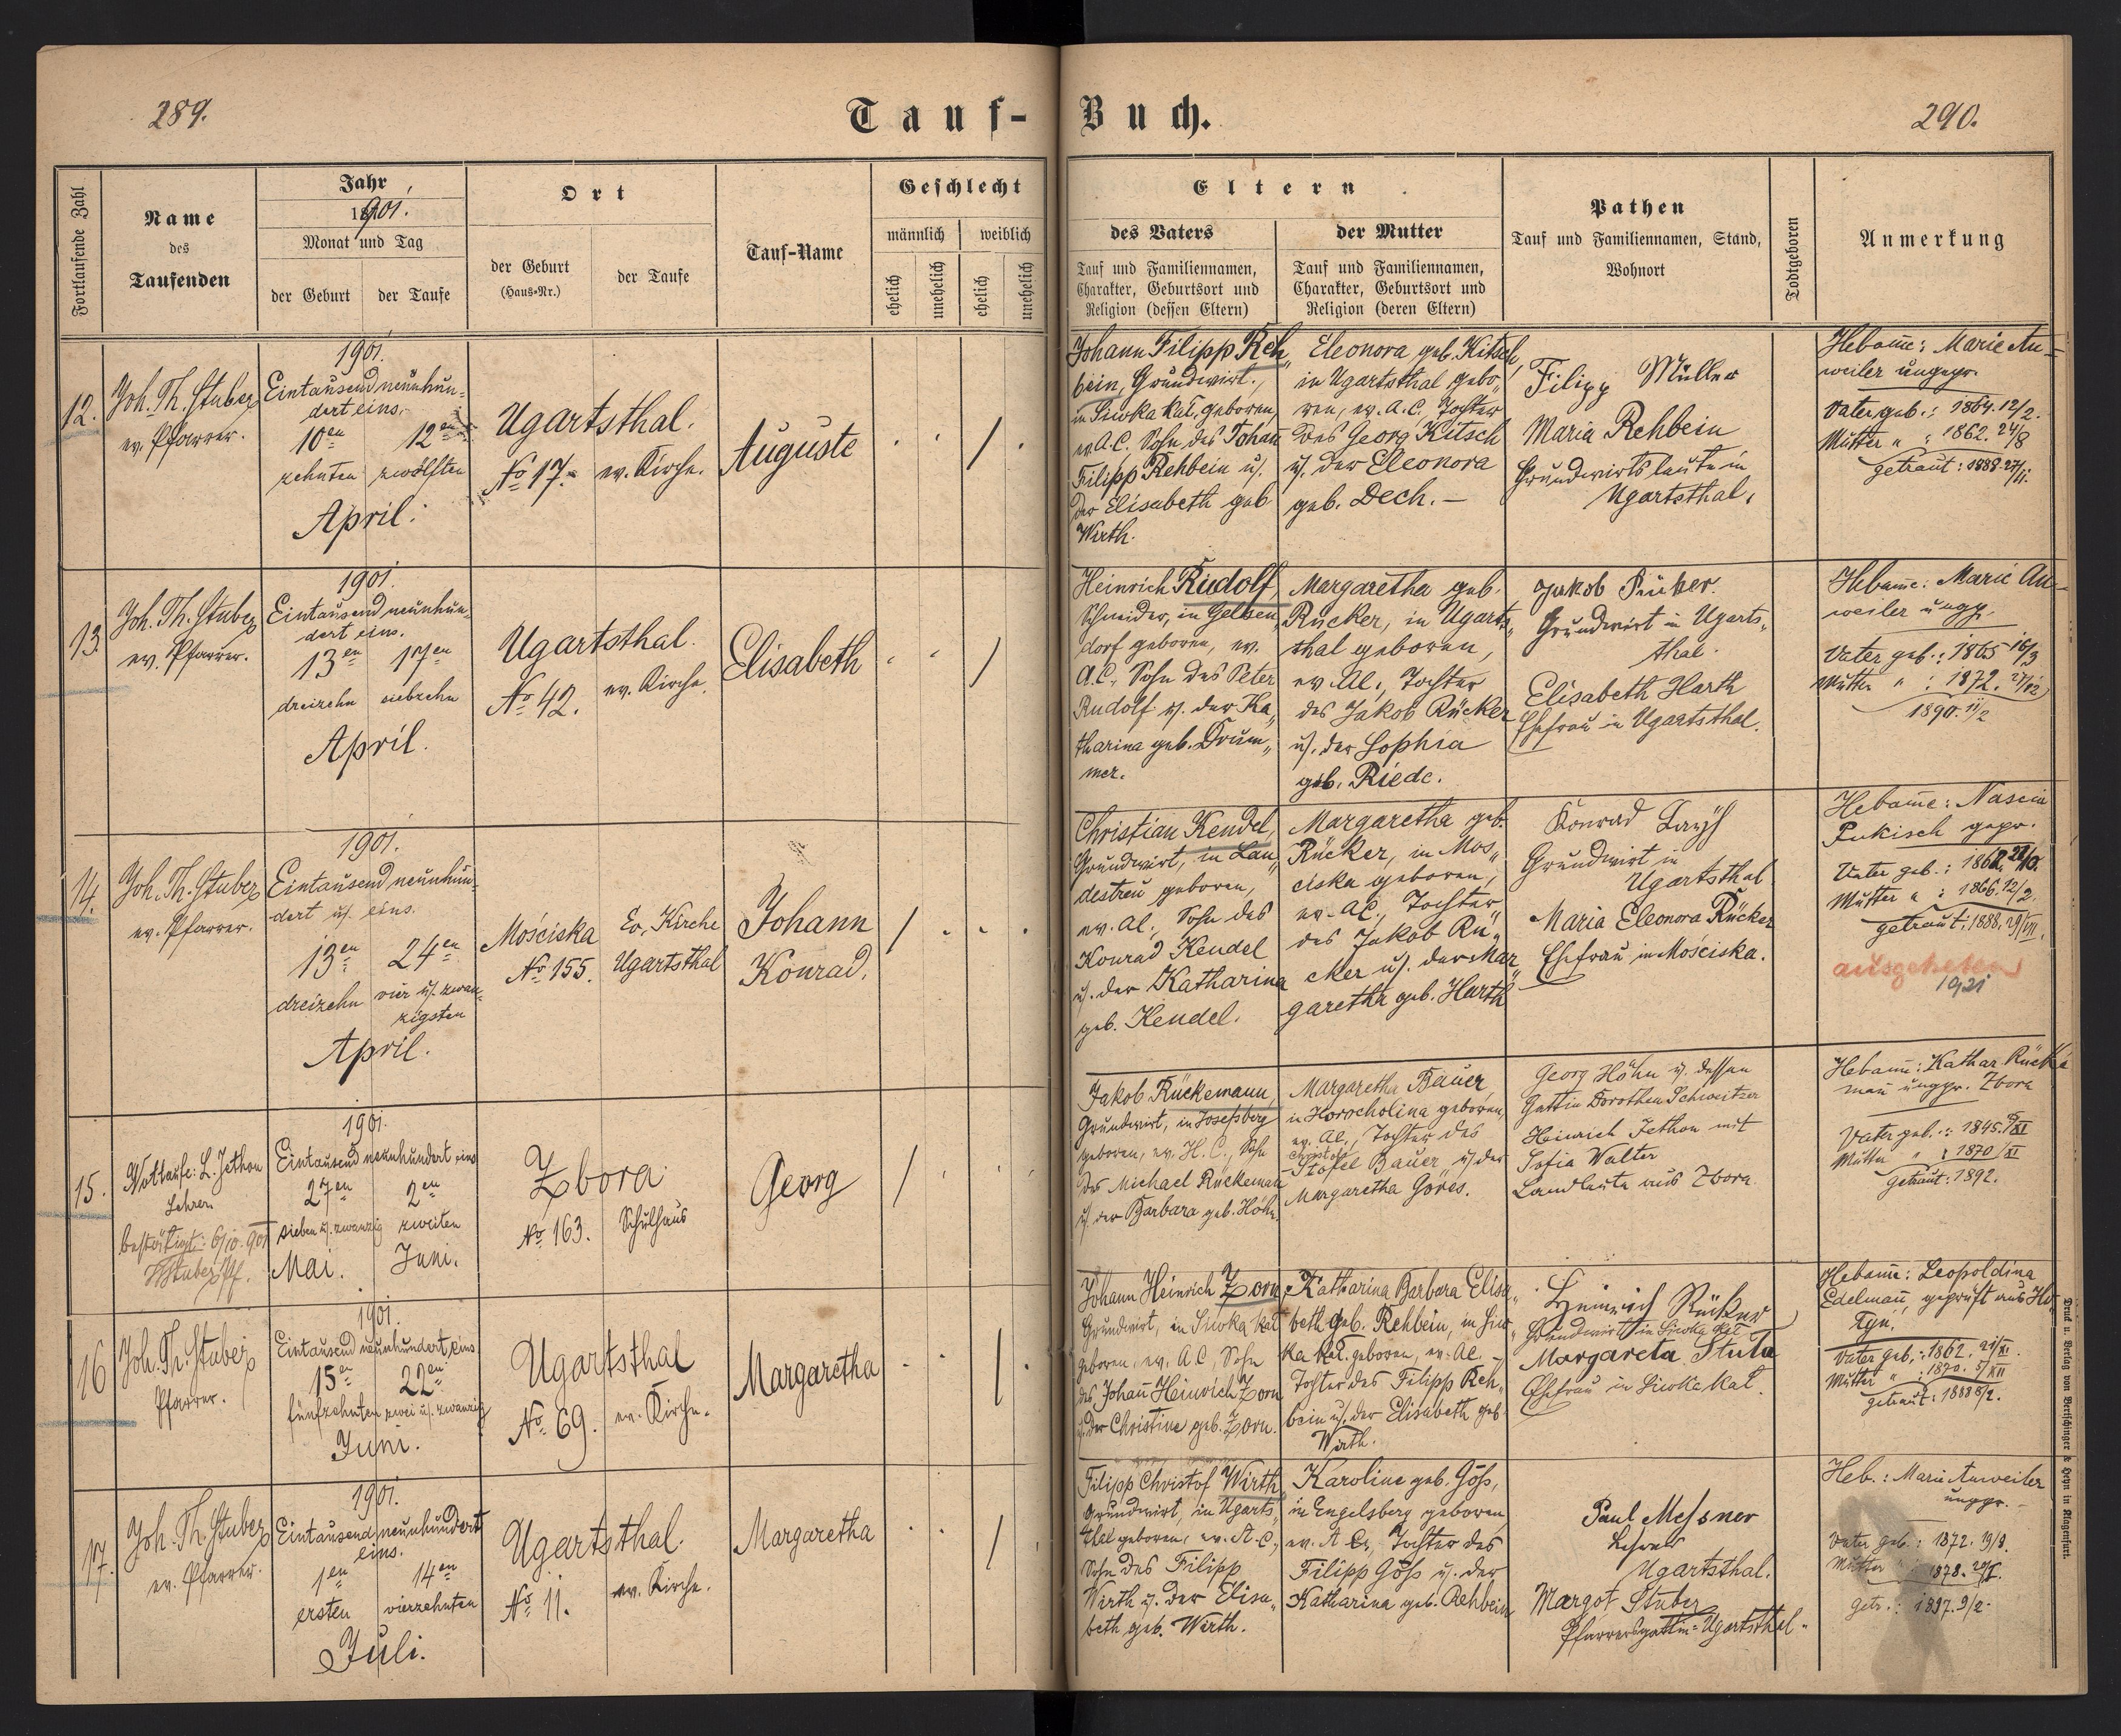 289.
Tauf-Buch.
290.
Fortlaufende Zahl
Name
des
Taufenden
Jahr
1901.
Monat und Tag
der Geburt
der Taufe
Ort
der Geburt
(Haus-Nr.)
der Taufe
Tauf-Name
Geschlecht
männlich
weiblich
ehelich
unehelich
ehelich
unehelich
Eltern
des Vaters
Tauf und Familiennamen,
Charakter, Geburtsort und
Religion (dessen Eltern)
der Mutter
Tauf und Familiennamen,
Charakter, Geburtsort und
Religion (deren Eltern)
Pathen
Tauf und Familiennamen, Stand,
Wohnort
Todtgeboren
Anmerkung
12.
Joh. Th. Stuber
ev. Pfarrer.
1901.
Eintausend neunhun-
dert eins.
10en
12en
zehnten
zwölften
April.
Ugartsthal.
No 17.
ev. Kirche.
Auguste
Johann Filipp Reh„
bein, Grundwirt.,
in Siwka kal. geboren,
ev. A.C. Sohn des Johan
Filipp Rehbein u.
der Elisabeth geb
Wirth.
Eleonora geb. Kitsch,
in Ugartsthal gebo„
ren, ev. A.C. Tochter
des Georg Kitsch
u. der Eleonora
geb. Dech. –
Filipp Müller
Maria Rehbein
Grundwirtsleute in
Ugartsthal.
Hebame: Marie An-
weiler ungepr.
Vater geb.: 1864. 12/2.
Mutter „ : 1862. 24/8
getraut: 1888. 27/11.
13.
Joh. Th. Stuber
ev. Pfarrer.
1901.
Eintausend neunhun-
dert eins.
13en
17en
dreizehn
siebzehn
April.
Ugartsthal.
No 42.
ev. Kirche.
Elisabeth
Heinrich Rudolf,
Schneider, in Gelsen„
dorf geboren, ev.
A.C. Sohn des Peter
Rudolf u. der Ka„
tharina geb. Drum„
mer.
Margaretha geb.
Rücker, in Ugarts„
thal geboren,
ev. AC., Tochter
des Jakob Rücker
u. der Sophia
geb. Riede.
Jakob Rücker.
Grundwirt in Ugarts„
thal.
Elisabeth Harth
Ehefrau in Ugartsthal.
Hebame: Marie An-
weiler ungp.
Vater geb.: 1865 16/3
Mutter „ : 1872. 27/12
1890. 11/2
14.
Joh. Th. Stuber
ev. Pfarrer.
1901.
Eintausend neunhun-
dert u. eins.
13en
24en
dreizehn
vier u. zwan-
zigsten
April.
Mościska
No 155.
Ev. Kirche
Ugartsthal
Johann
Konrad.
Christian Kendel,
Grundwirt, in Lan„
destreu geboren,
ev. AC., Sohn des
Konrad Kendel
u. der Katharina
geb. Kendel.
Margaretha geb.
Rücker, in Mos„
ciska geboren,
ev. AC., Tochter
des Jakob Rü„
cker u. der Mar„
garetha geb. Harth
Konrad
Grundwirt in
Ugartsthal
Maria Eleonora Rücker
Ehefrau in Mościska.
Hebame: Nascia
Pukisch gepr.
Vater geb.:
Mutter „ : 1866. 12/2.
getraut: 1888. 29/VII.
1921
15.
Nottaufe: L. Jethon
Lehrer
bestätigt: 6/10. 901
Stuber Pf.
1901.
Eintausend neunhundert eins
27en
2en
sieben u. zwanzig
zweiten
Mai.
Juni.
Zbora
No 163.
Schulhaus
Georg
Jakob Rückemann,
Grundwirt, in Josefsberg
geboren, ev. H.C., Sohn
des Michael Rückeman
u. der Barbara geb. Höhn.
Margaretha Bauer
in Horocholina geboren,
ev. AC., Tochter des
Christof
Stofel Bauer u. der
Margaretha Gores.
Georg Höhn u. dessen
Gattin Dorothea Schweitzer
Heinrich Jethon mit
Sofia Walter
Landleute aus Zbora
Hebame: Kathar. Rücke
man ungpr. Zbora
Vater geb.: 1845.
Mutter „ : 1870/XI
getraut: 1892.
16
Joh. Th. Stuber
Pfarrer.
1901.
Eintausend neunhundert eins
15en
22en
fünfzehnten
zwei u. zwanzig
Juni.
Ugartsthal
No. 69.
ev. Kirche.
Margaretha
Johann Heinrich Zorn
Grundwirt, in Siwka kal
geboren, ev. AC, Sohn
des Johan Heinrich Zorn
u. der Christine geb. Zorn.
Katharina Barbara Elisa„
beth geb. Rehbein, in Siw„
ka kal. geboren, ev. AC. –
Tochter des Filipp Reh„
bein u. der Elisabeth geb.
Wirth.
Heinrich Rücker
Grundwirt in Siwka kal
Margareta Stuta
Ehefrau in Siwka kal.
Hebame: Leopoldina
Edelman, geprüft aus Ho-
lyń.
Vater geb.: 1862. 21/XI.
Mutter „ : 1870. 5/XII
getraut: 1888 5/2.
17.
Joh. Th. Stuber
ev. Pfarrer.
1901.
Eintausend neunhundert
eins.
1en
14en
ersten
vierzehnten
Juli.
Ugartsthal.
No 11.
ev. Kirche.
Margaretha
Filipp Christof Wirth,
Grundwirt, in Ugarts„
thal geboren, ev. A.C.,
Sohn des Filipp
Wirth u. der Elisa„
beth geb. Wirth.
Karoline geb. Göss,
in Engelsberg geboren
ev. A C., Tochter des
Filipp Göss u. der
Katharina geb. Rehbein
Paul Messner
Lehrer
Ugartsthal.
Margot Stuber
Pfarrersgattin Ugartsthal.
Heb.: Marie Anweiler
ungpr.
Vater geb.: 1872. 19/9.
Mutter „ 1878. 20/I.
Getr.: 1897. 9/2.
Druck u. Verlag von Bertschinger & Heyn in Klagenfurt.